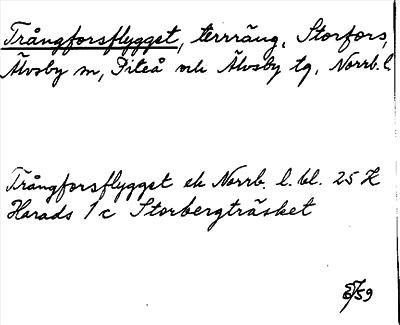 Trångforsflygget, terräng, Storfors,
Älvsby sn, Piteå och Älvsby tg, Norrb. l.
Trångforsflygget ek Norrb. l. bl. 25 H
Harads 1 c Storbergträsket
59